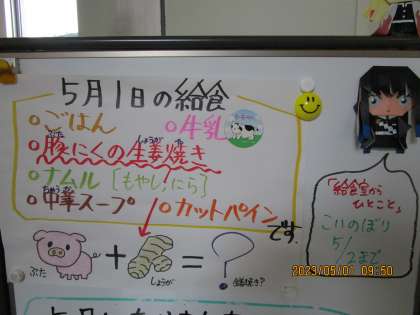 5月1日の給食
○ごはん
○牛乳
ぶた しょうが や
○豚にくの生姜焼き
○ナムル[もやし,にら]
ちゅうか
○中華スープ
○カットパインです。
+ = ?
ぶた
しょうが
「給食室から
ひとこと」
こいのぼり
5/
2まで
2023/05/01 09:50